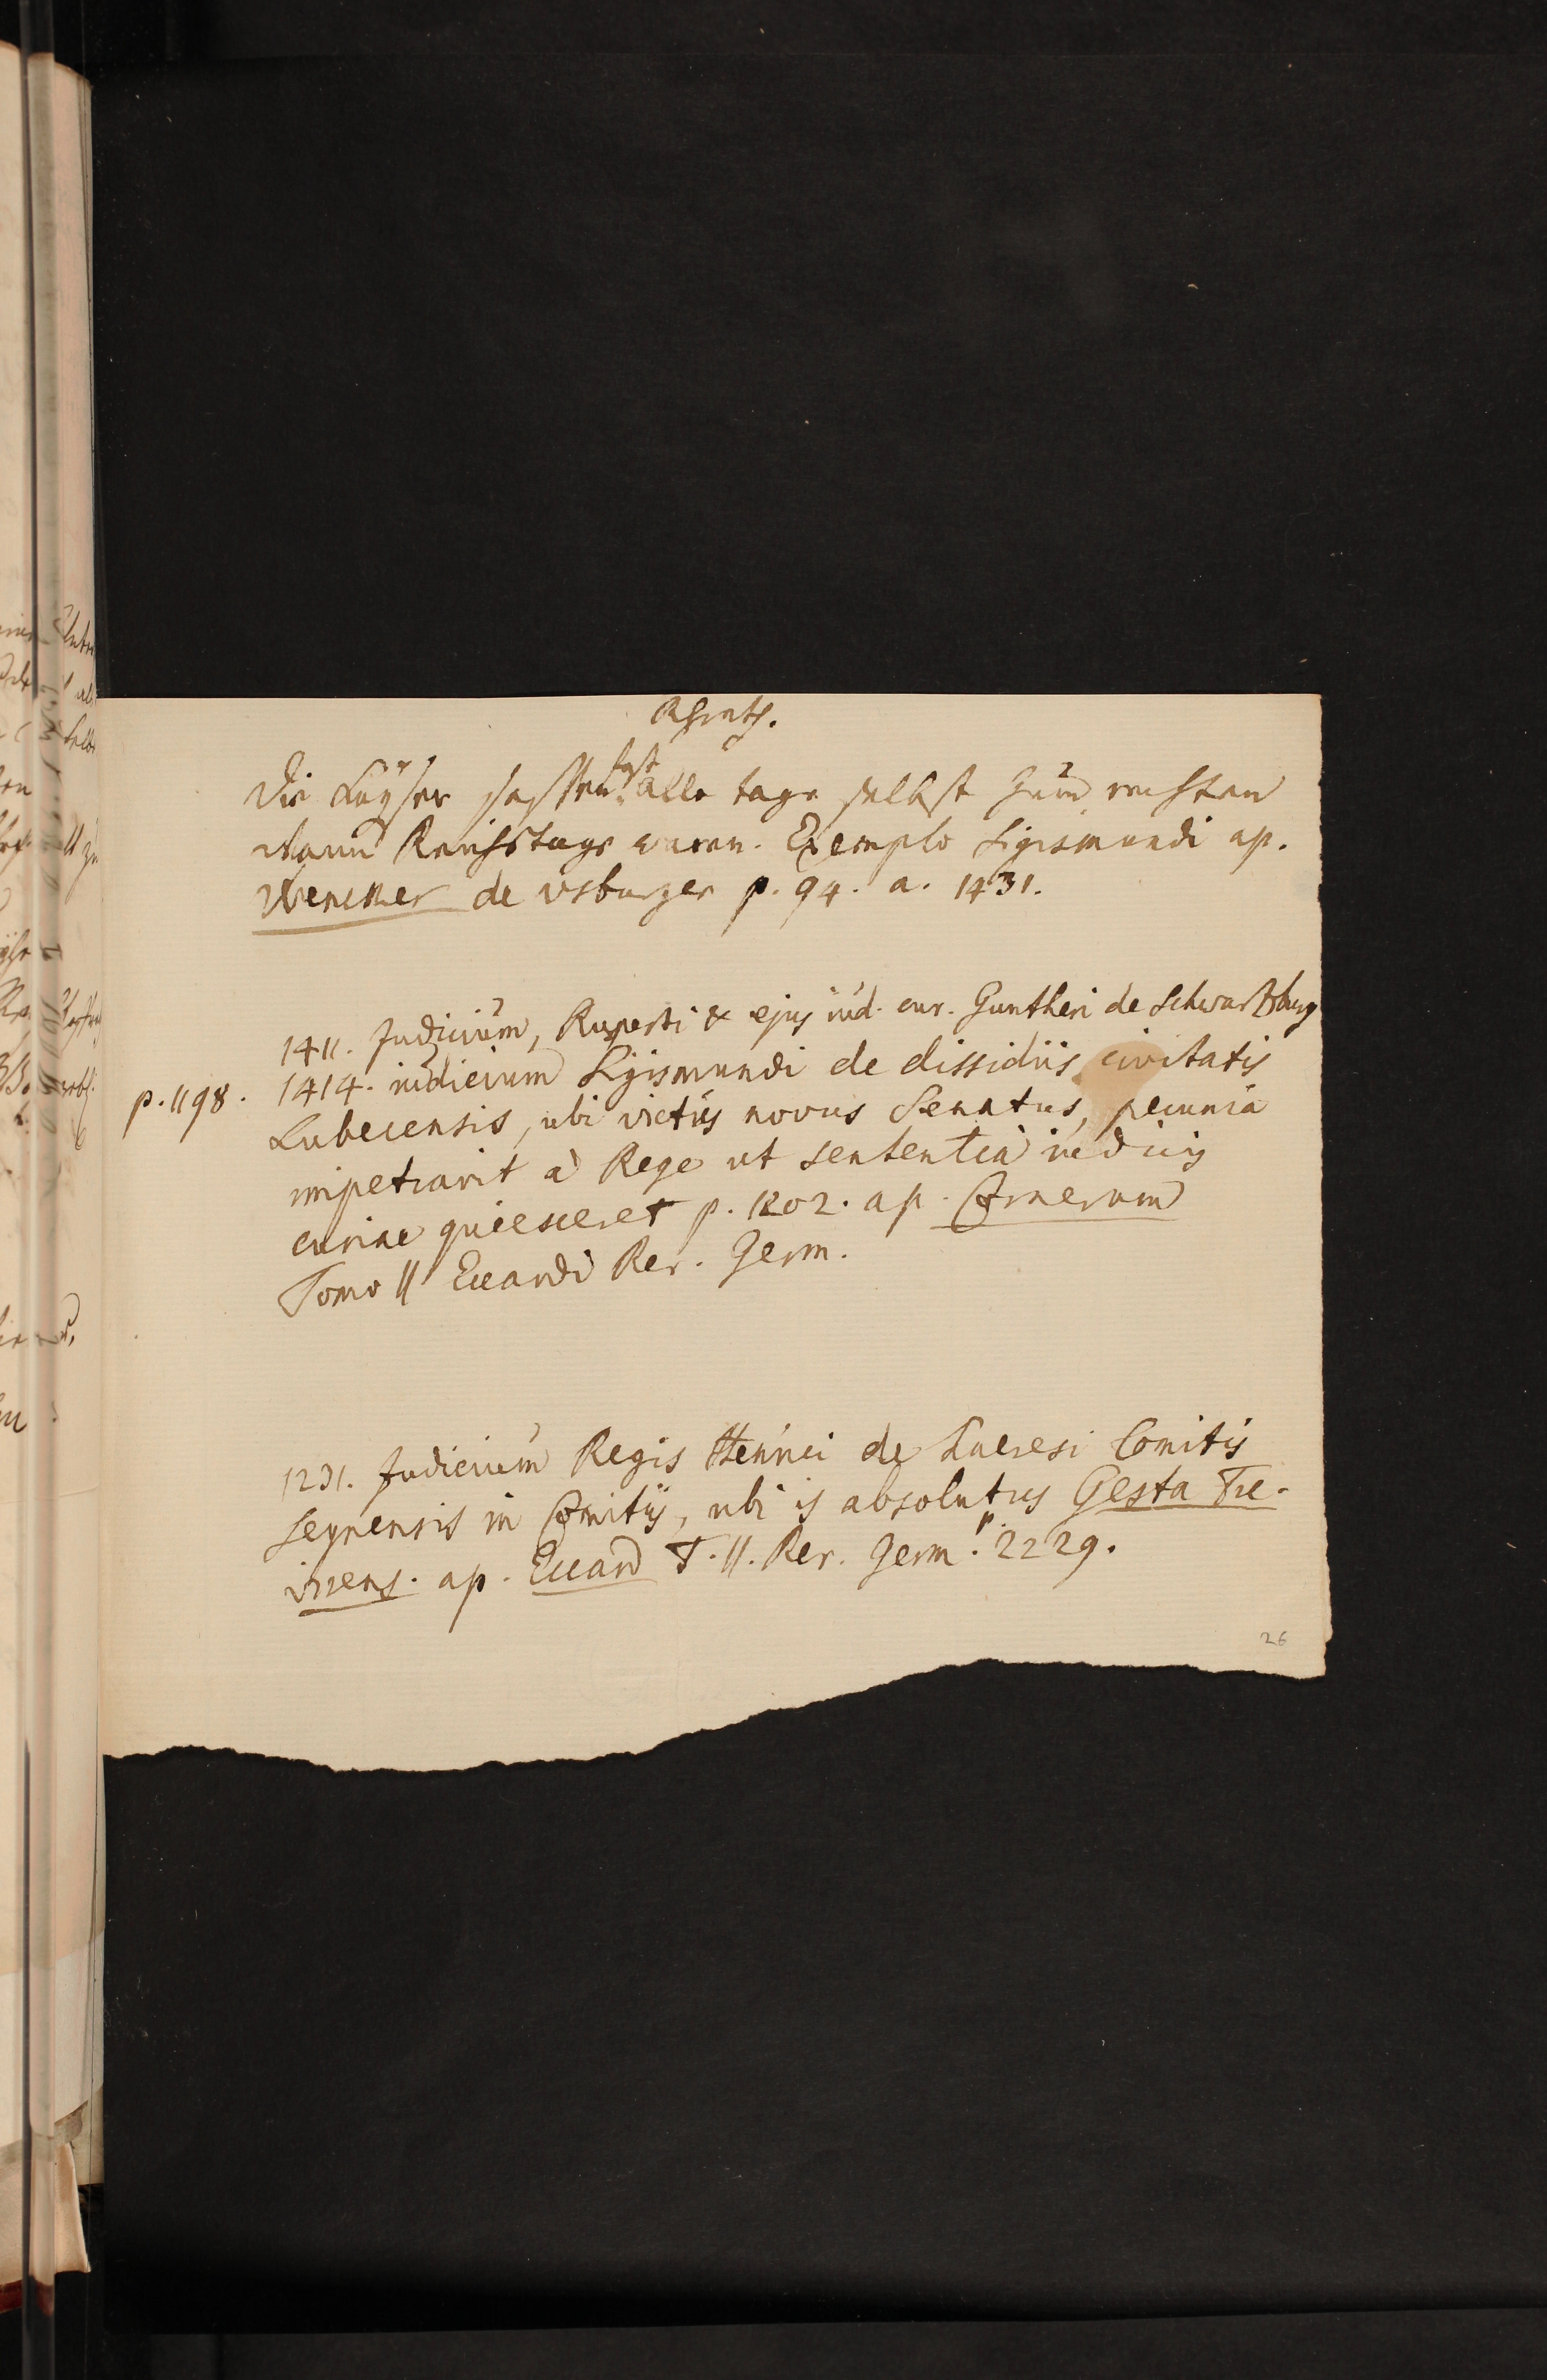 RHrath.
Die Kayser saßen fast alle tage selbst zum rechten
wann Reichstage waren. Exemplo Sigismundi ap.
Wencker de usburger p. 94. a. 1431.
1411. Judicium, Ruperti & ejus iud. cur. Guntheri de Schwartzburg
p. 1198. 1414. iudicium Sigismundi de dissidiis civitatis
Lubecensis, ubi victus novus Senatus, pecunia
impetravit a Rege ut sententia iudicis
curiae quiesceret p. 1202. ap. Cornerum
Tomo II Eccardi Rer. Germ.
1231. Judicium Regis Henrici de haeresi Comitis
Seynensis in Comitiis, ubi is absolutus Gesta Tre-
virens. ap. Eccard T. II. Rer. Germ. p. 2229.
26